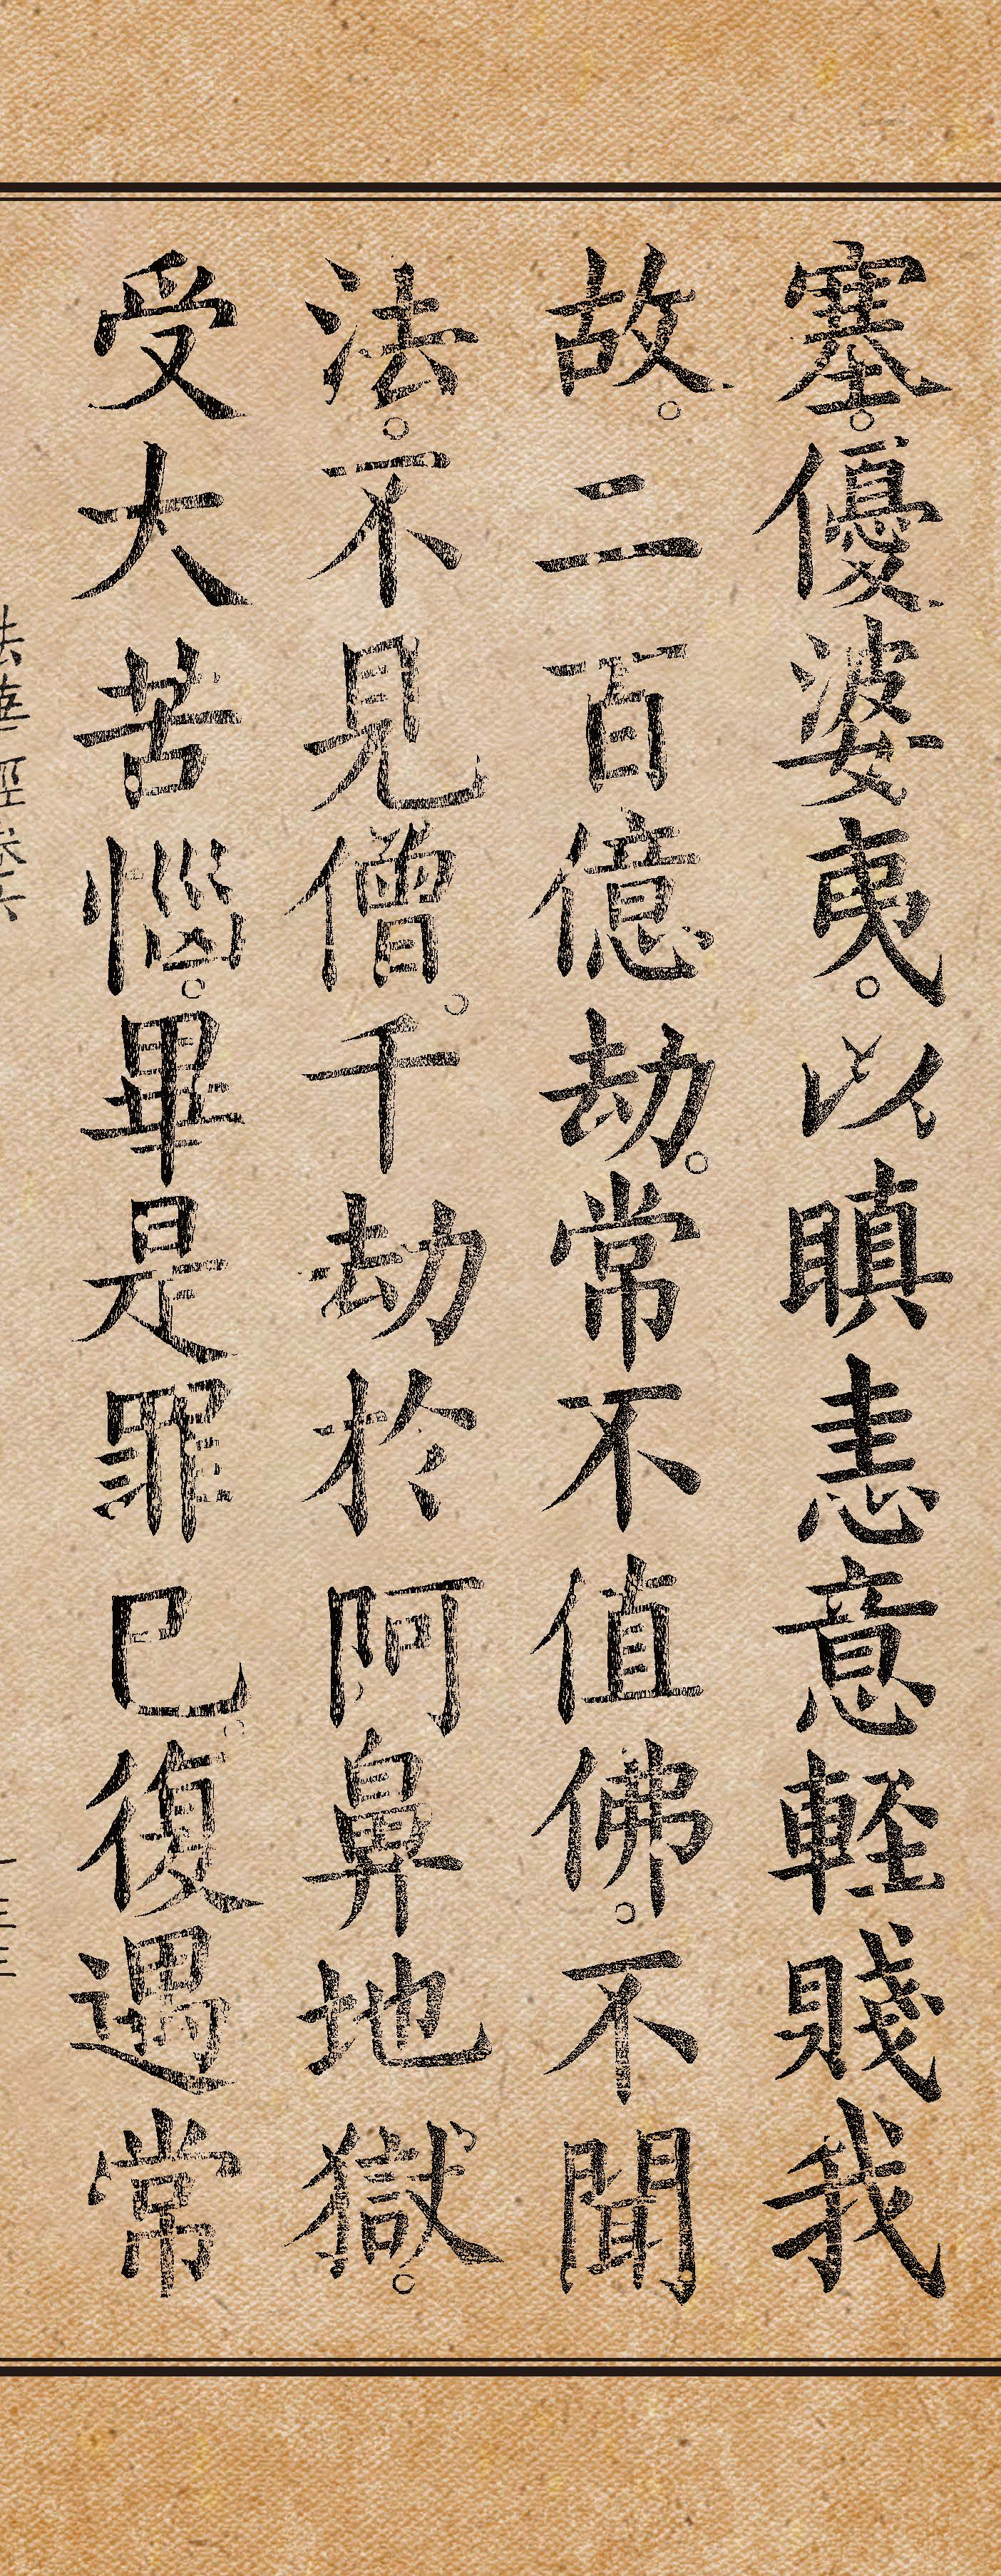 塞。優婆夷。以瞋恚意輕賤我
故。二百億劫。常不值佛。不聞
法。不見僧。千劫於阿鼻地獄。
受大苦惱。畢是罪已。復遇常